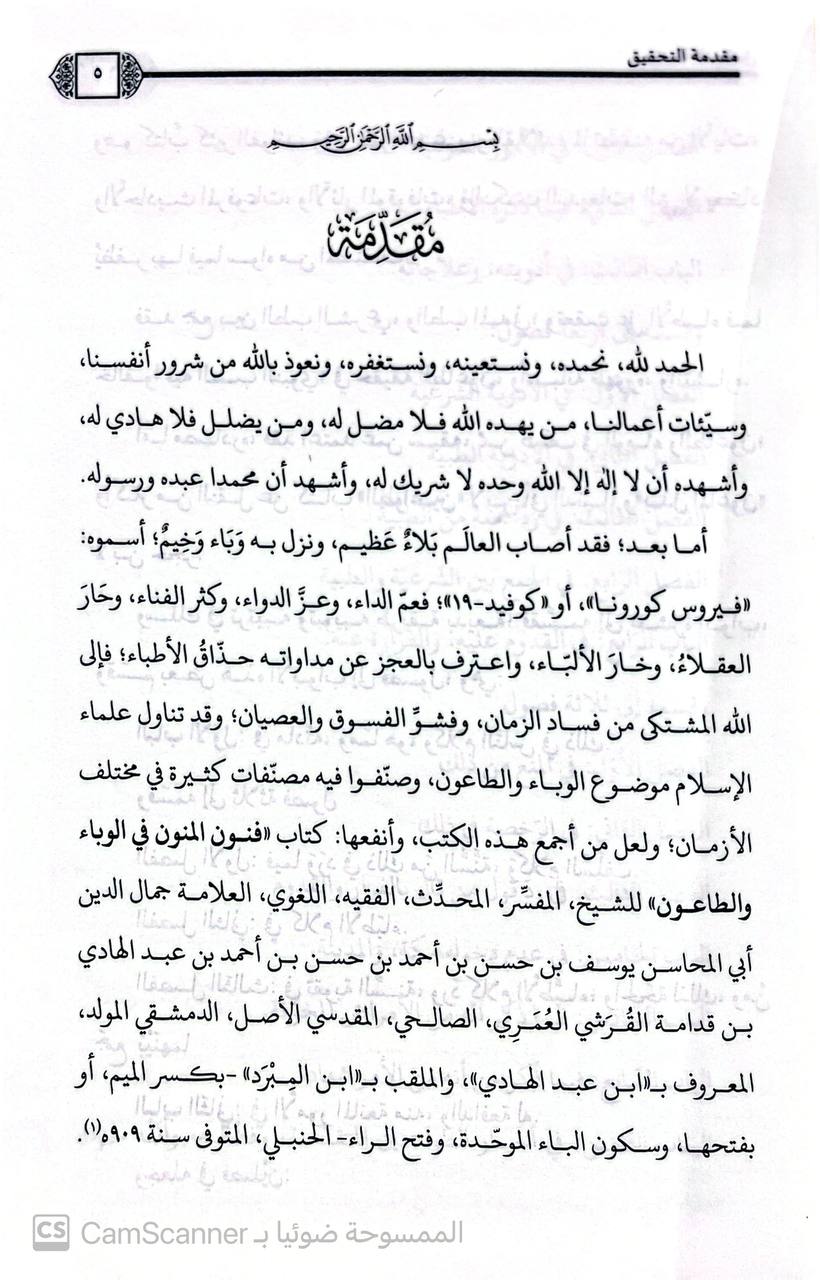 مقدمة التحقيق
٥
بِسْمِ اللَّهِ الرَّحْمَٰنِ الرَّحِيمِ
مُقَدِّمَة
الحمد لله، نحمده، ونستعينه، ونستغفره، ونعوذ بالله من شرور أنفسنا،
وسيّئات أعمالنا، من يهده الله فلا مضل له، ومن يضلل فلا هادي له،
وأشهده أن لا إلٰه إلا الله وحده لا شريك له، وأشهد أن محمدا عبده ورسوله.
أما بعد؛ فقد أصاب العالَم بَلاءٌ عَظيم، ونزل به وَبَاء وَخِيمٌ؛ أسموه:
«فيروس كورونا»، أو «كوفيد-١٩»؛ فعمّ الداء، وعزَّ الدواء، وكثر الفناء، وحَارَ
العقلاءُ، وخارَ الألبّاء، واعترف بالعجز عن مداواته حذّاقُ الأطباء؛ فإلى
الله المشتكى من فساد الزمان، وفشوِّ الفسوق والعصيان؛ وقد تناول علماء
الإسلام موضوع الوباء والطاعون، وصنّفوا فيه مصنّفات كثيرة في مختلف
الأزمان؛ ولعل من أجمع هذه الكتب، وأنفعها: كتاب «فنون المنون في الوباء
والطاعون» للشيخ، المفسِّر، المحدِّث، الفقيه، اللغوي، العلامة جمال الدين
أبي المحاسن يوسف بن حسن بن أحمد بن حسن بن أحمد بن عبد الهادي
بن قدامة القُرَشي العُمَرِي، الصالحي، المقدسي الأصل، الدمشقي المولد،
المعروف بـ«ابن عبد الهادي»، والملقب بـ«ابن المِبْرَد» -بكسر الميم، أو
بفتحها، وسكون الباء الموحّدة، وفتح الراء- الحنبلي، المتوفى سنة ٩٠٩ه(١).
CS CamScanner الممسوحة ضوئيا بـ